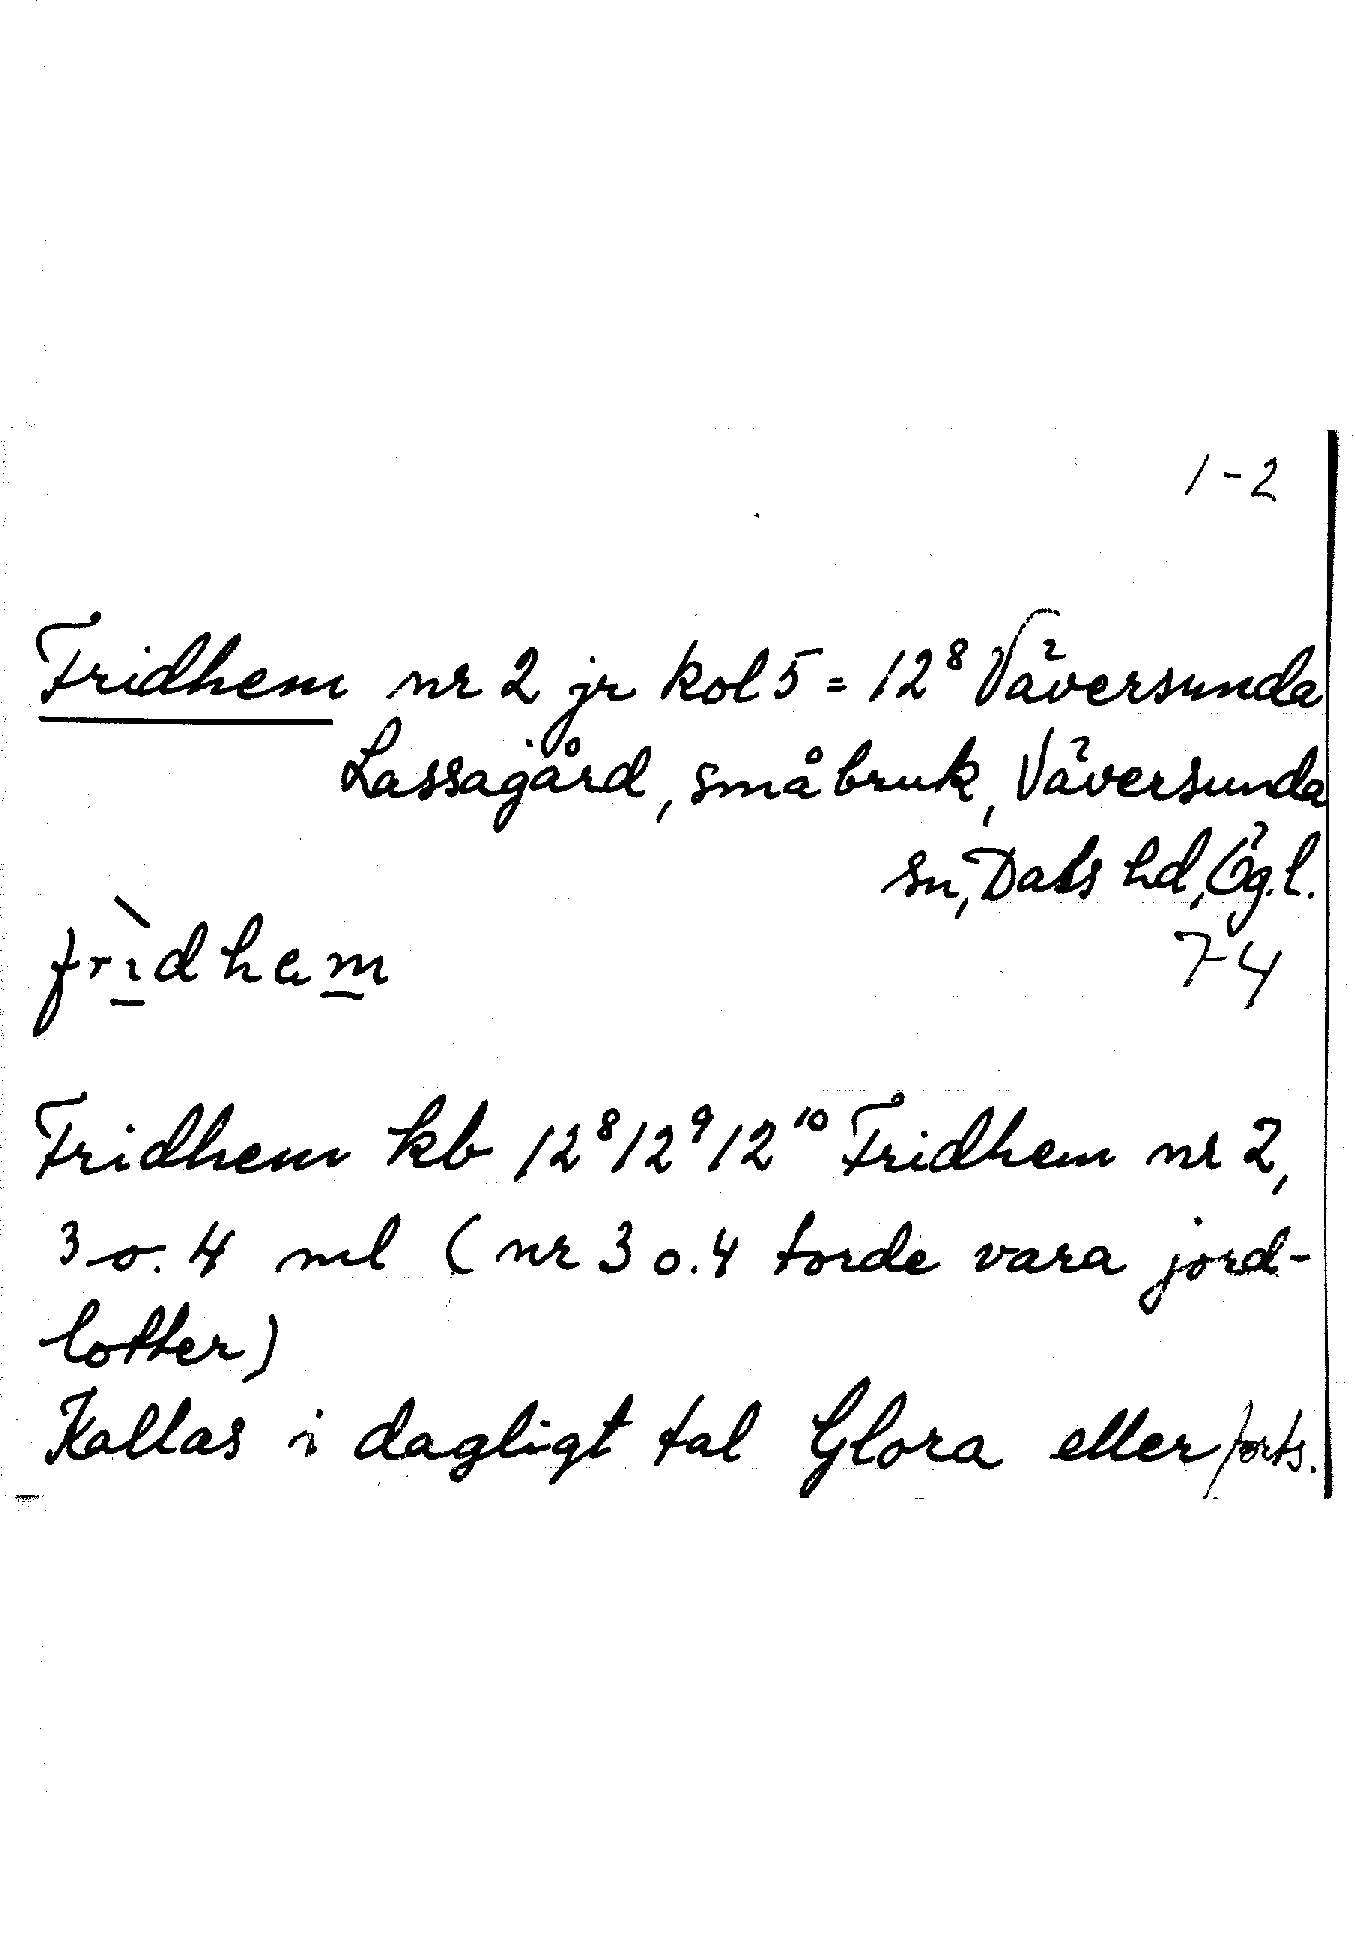 1-2
Fridhem nr 2 jr kol 5 = 12⁸ Väversunda
Lassagård, småbruk, Väversunda
sn, Dals hd, Ögl.
frìdhem
74
Fridhem kb 12⁸ 12⁹ 12¹⁰ Fridhem nr 2,
3 o. 4 ml (nr 3 o. 4 torde vara jord-
lotter)
Kallas i dagligt tal Glora eller forts.